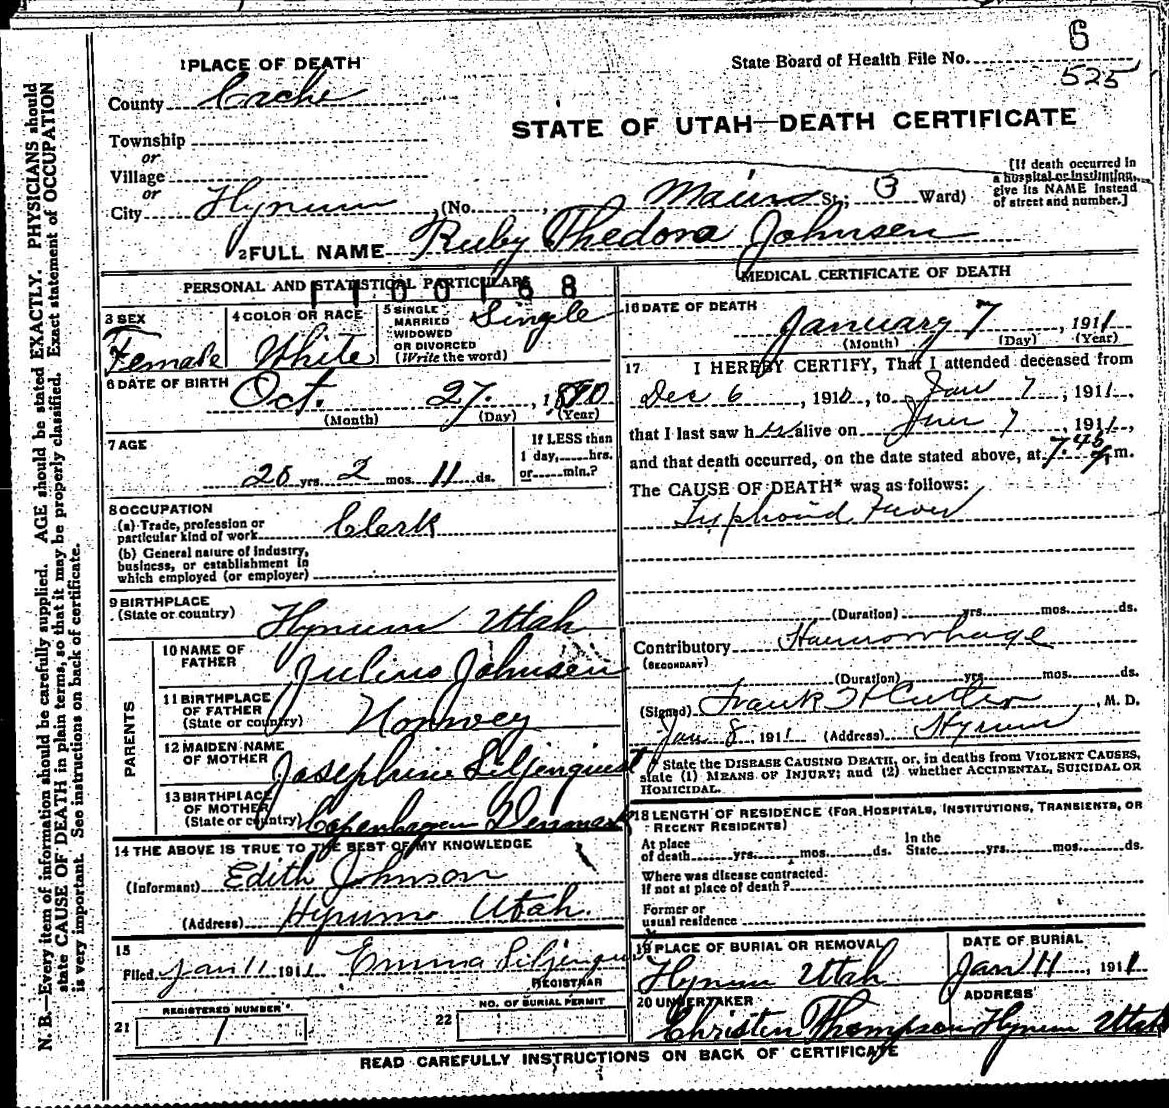 6
State Board of Health File No.
525
1 PLACE OF DEATH
County Cache
STATE OF UTAH—DEATH CERTIFICATE
Township
or
Village
or
City Hyrum (No. , Main St.; 3 Ward)
[If death occurred in
a hospital or institution,
give its NAME instead
of street and number.]
2 FULL NAME Ruby Thedora Johnsen
PERSONAL AND STATISTICAL PARTICULARS
1100168
3 SEX
Female
4 COLOR OR RACE
White
5 SINGLE
MARRIED
WIDOWED
OR DIVORCED
(Write the word)
Single
6 DATE OF BIRTH
Oct. 27. , 1890
(Month) (Day) (Year)
7 AGE
20 yrs. 2 mos. 11 ds.
If LESS than
1 day, hrs.
or min.?
8 OCCUPATION
(a) Trade, profession or
particular kind of work Clerk
(b) General nature of industry,
business, or establishment in
which employed (or employer)
9 BIRTHPLACE
(State or country)
Hyrum Utah
PARENTS
10 NAME OF
FATHER
Julius Johnsen
11 BIRTHPLACE
OF FATHER
(State or country)
Norwey
12 MAIDEN NAME
OF MOTHER
Josephine Liljenquist
13 BIRTHPLACE
OF MOTHER
(State or country)
Copenhagen Denmark
14 THE ABOVE IS TRUE TO THE BEST OF MY KNOWLEDGE
(Informant) Edith Johnson
(Address) Hyrum Utah.
15
Filed Jan 11 1911 Emma Liljenquist
REGISTRAR
REGISTERED NUMBER
21 1
NO. OF BURIAL PERMIT
22 1
MEDICAL CERTIFICATE OF DEATH
16 DATE OF DEATH
January 7 , 1911
(Month) (Day) (Year)
17 I HEREBY CERTIFY, That I attended deceased from
Dec 6 , 1910, to Jan 7 , 1911,
that I last saw her alive on Jan 7 , 1911,
and that death occurred, on the date stated above, at 7.45 p.m.
The CAUSE OF DEATH* was as follows:
Typhoid Fever
(Duration) yrs. mos. ds.
Contributory Haemorrhage
(SECONDARY)
(Duration) yrs. mos. ds.
(Signed) Frank H Cutler , M. D.
Jan 8, 1911 (Address) Hyrum
State the DISEASE CAUSING DEATH, or, in deaths from VIOLENT CAUSES,
state (1) MEANS OF INJURY; and (2) whether ACCIDENTAL, SUICIDAL OR
HOMICIDAL.
18 LENGTH OF RESIDENCE (FOR HOSPITALS, INSTITUTIONS, TRANSIENTS, OR
RECENT RESIDENTS)
At place
of death yrs. mos. ds.
In the
State yrs. mos. ds.
Where was disease contracted.
If not at place of death?
Former or
usual residence
19 PLACE OF BURIAL OR REMOVAL
Hyrum Utah
DATE OF BURIAL
Jan 11 , 1911
20 UNDERTAKER
Christen Thompson
ADDRESS
Hyrum Utah
READ CAREFULLY INSTRUCTIONS ON BACK OF CERTIFICATE
N. B.—Every item of information should be carefully supplied. AGE should be stated EXACTLY. PHYSICIANS should
state CAUSE OF DEATH in plain terms, so that it may be properly classified. Exact statement of OCCUPATION
is very important. See instructions on back of certificate.